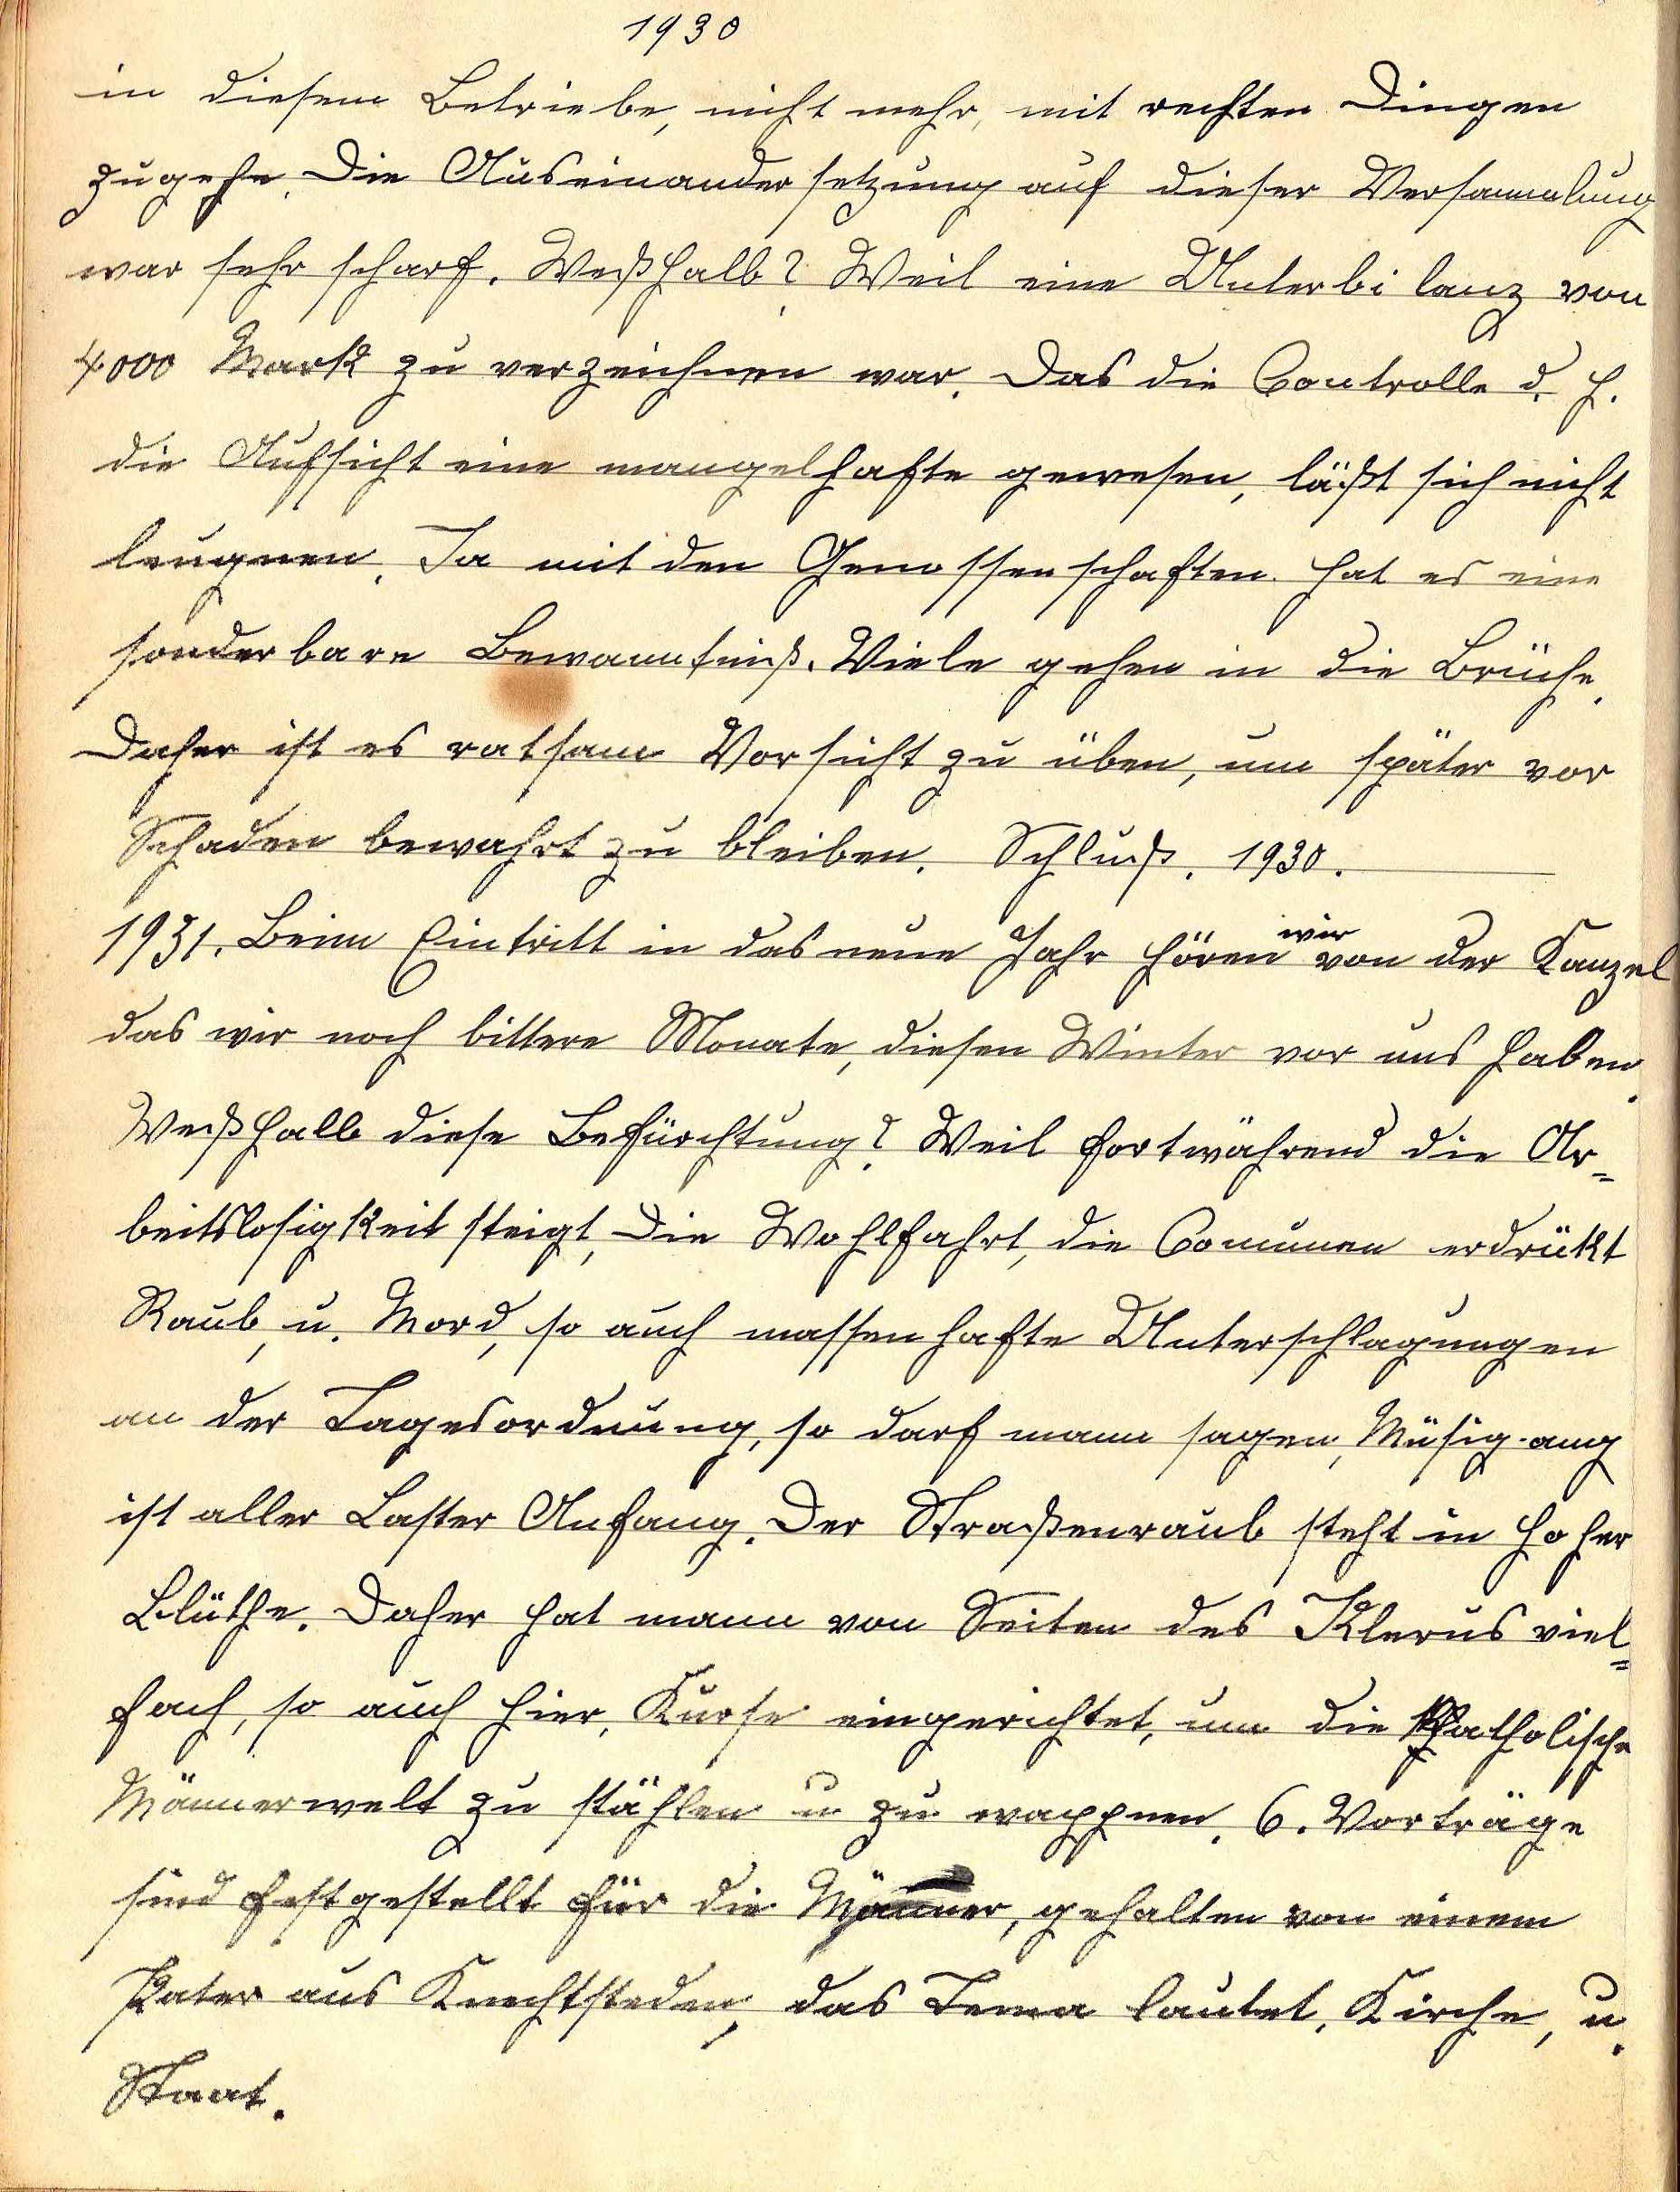 1930
in diesem Betriebe, nicht mehr, mit rechten Dingen
zugehe. Die Auseinandersetzung auf dieser Versammlung
war sehr scharf. Weßhalb? Weil eine Unterbilanz von
4000 Mark zu verzeichnen war. Das die Controlle d. h.
die Aufsicht eine mangelhafte gewesen, läßt sich nicht
leugnen. Ja mit den Genossenschaften hat es eine
sonderbare Bewanntniß. Viele gehen in die Brüche.
Daher ist es ratsam Vorsicht zu üben, um später vor
Schaden bewahrt zu bleiben. Schluß. 1930.
1931. Beim Eintritt in das neue Jahr hören wir von der Kanzel
das wir noch bittere Monate, diesen Winter vor uns haben.
Weßhalb diese Befürchtung? Weil fortwährend die Ar=
beitslosigkeit steigt, Die Wohlfahrt, die Comunen erdrükt
Raub, u. Mord, so auch massenhafte Unterschlagungen
an der Tagesordnung, so darf mann sagen, Müsigang
ist aller Laster Anfang. Der Straßenraub steht in hoher
Blüthe. Daher hat mann von Seiten des Klerus viel=
fach, so auch hier, Kurse eingerichtet, um die Katholische
Männerwelt zu stählen u zu wappnen. 6. Vorträge
sind festgestellt für die Männer, gehalten von einem
Pater aus Knechtsteden, das Tema lautet, Kirche, u.
Staat.